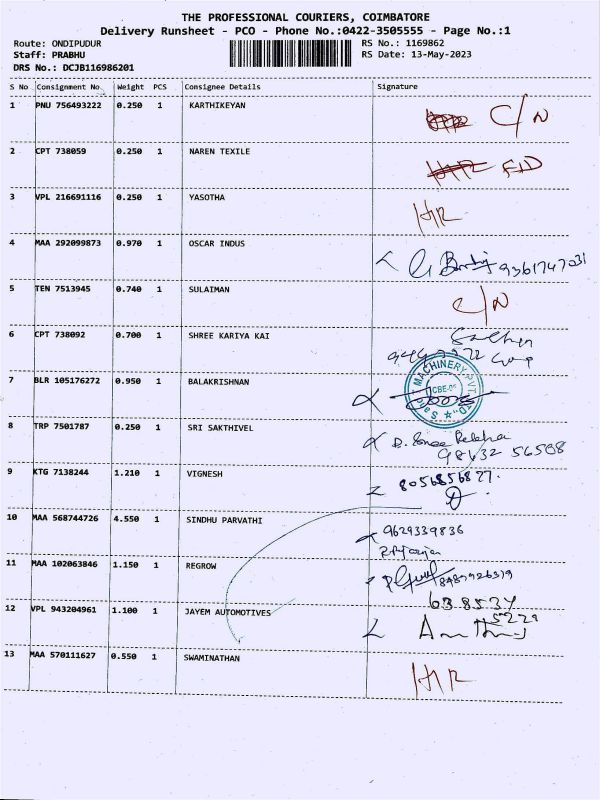 THE PROFESSIONAL COURIERS, COIMBATORE
Delivery Runsheet - PCO - Phone No.:0422-3505555 - Page No.:1
Route: ONDIPUDUR RS No.: 1169862
Staff: PRABHU RS Date: 13-May-2023
DRS No.: DCJB116986201
S No Consignment No. Weight PCS Consignee Details Signature
1 PNU 756493222 0.250 1 KARTHIKEYAN C/N
2 CPT 738059 0.250 1 NAREN TEXILE
3 VPL 216691116 0.250 1 YASOTHA
4 MAA 292099873 0.970 1 OSCAR INDUS 9361747031
5 TEN 7513945 0.740 1 SULAIMAN C/N
6 CPT 738092 0.700 1 SHREE KARIYA KAI
7 BLR 105176272 0.950 1 BALAKRISHNAN MACHINERY PVT.
8 TRP 7501787 0.250 1 SRI SAKTHIVEL 98432 56588
9 KTG 7138244 1.210 1 VIGNESH 8056856827.
10 MAA 568744726 4.550 1 SINDHU PARVATHI 9629339836
11 MAA 102063846 1.150 1 REGROW
12 VPL 943204961 1.100 1 JAYEM AUTOMOTIVES
13 MAA 570111627 0.550 1 SWAMINATHAN